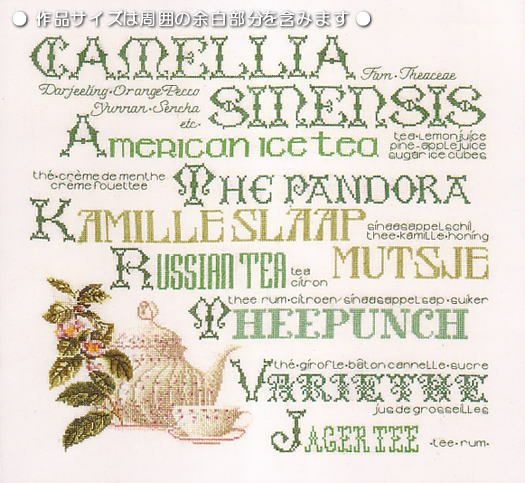 ● 作品サイズは周囲の余白部分を含みます ●
CAMELLIA Fam. Theaceae
Darjeeling·OrangePecco
Yunnan·Sencha
etc.
SINENSIS
AMERICAN ICE TEA
tea·lemonjuice
pine-applejuice
sugar ice cubes
thé·crème de menthe
crème fouettee
THE PANDORA
KAMILLE SLAAP
sinaasappelschil
thee·kamille·honing
RUSSIAN TEA tea
citron
MUTSJE
thee·rum·citroen/sinaasappelsap·suiker
THEEPUNCH
thé·girofle·bâton cannelle·sucre
VARIETHE
jus de groseilles
JAGERTEE ·tee·rum·